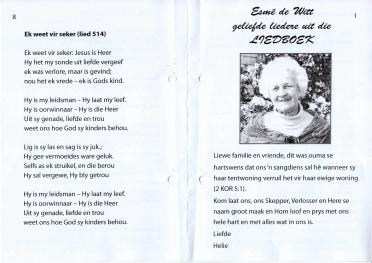 8
Ek weet vir seker (lied 514)
Ek weet vir seker: Jesus is Heer
Hy het my sonde uit liefde vergeef
ek was verlore, maar is gevind;
nou het ek vrede – ek is Gods kind.
Hy is my leidsman – Hy laat my leef.
Hy is oorwinnaar – Hy is die Heer
Uit sy genade, liefde en trou
weet ons hoe God sy kinders behou.
Lig is sy las en sag is sy juk.;
Hy gee vermoeides ware geluk.
Selfs as ek struikel, en die berou
Hy sal vergewe, Hy bly getrou
Hy is my leidsman – Hy laat my leef.
Hy is oorwinnaar – Hy is die Heer
Uit sy genade, liefde en trou
weet ons hoe God sy kinders behou.
1
Esmé de Witt
geliefde liedere uit die
LIEDBOEK
Liewe familie en vriende, dit was ouma se
hartswens dat ons 'n sangdiens sal hê wanneer sy
haar tentwoning verruil het vir haar ewige woning
(2 KOR 5:1).
Kom laat ons, ons Skepper, Verlosser en Here se
naam groot maak en Hom loof en prys met ons
hele hart en met alles wat in ons is.
Liefde
Helie